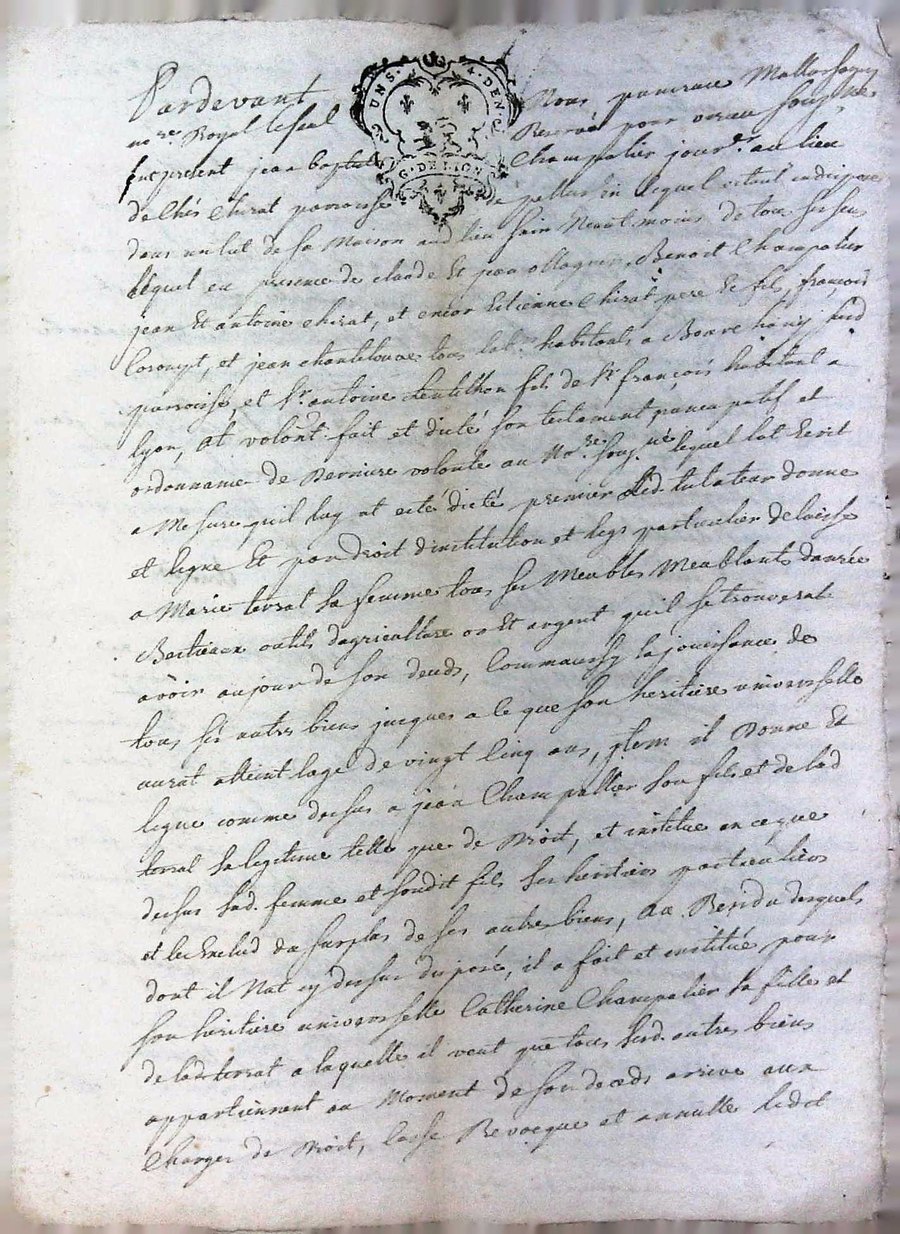 Pardevant Nous pancrace
UN S. 4. DEN
G. DE LION
nore Royal Reservé pour vereau souzné
fut present jean baptiste Champalier jour.r au lieu
de Chés Chirat parroisse de lequel estant indispozé
dans un lit de sa Maison aud lieu sain Neant moins de tous ses sens
lequel en presence de claude Et jean ollagnier Benoit Champalier
jean Et antoine Chirat, et encor Estienne Chirat pere Et fils, françois
et jean chantelouve tous lab.rs habitants a
parroisse, et Sr. antoine fils de Sr. françois habitant a
lyon, At volont fait et dicté son testament nuncupatif et
ordonnance de Derniere volonté au Nore. souzné lequel lat Ecrit
a Mesure quil luy at esté dicté premier Led. testateur donne
et legue Et par droit dinstitution et legs particulier delaisse
a Marie terrat sa femme tous ses Meubles Meublants danrée
Bestieaux outils dagriculture or Et argent quil se trouverat
avoir au jour de son deceds, Comm aussy la jouissance de
tous ses autres biens jusques a ce que son heritiere universselle
aurat atteint lage de vingt Cinq ans, jtem il Donne Et
legue comme dessus a jean Champallier son fils et de lad
terrat sa legitime telle que de Droit, et institue en ce que
dessus sad. femme et sondit fils ses heritiers particuliers
et les Exclud du surplus de ses autres biens, Au Residu desquels
dont il Nat cy dessus disposé, il a fait et institué pour
son heritiere universselle Catherine Champalier sa fille et
de lad terrat a laquelle il veut que tous sesd. autres biens
appartiennent au Moment de son deceds arrivé aux
Charges de Droit, Casse Revocque et annulle